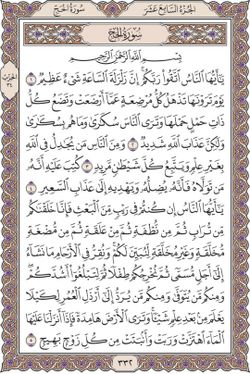 الجُزْءُ السَّابِعَ عَشَرَ
سُورَةُ الحَجِّ
سُورَةُ الحَجِّ
بِسْمِ ٱللَّهِ ٱلرَّحْمَٰنِ ٱلرَّحِيمِ
يَٰٓأَيُّهَا ٱلنَّاسُ ٱتَّقُوا۟ رَبَّكُمْ إِنَّ زَلْزَلَةَ ٱلسَّاعَةِ شَىْءٌ عَظِيمٌ ١
يَوْمَ تَرَوْنَهَا تَذْهَلُ كُلُّ مُرْضِعَةٍ عَمَّآ أَرْضَعَتْ وَتَضَعُ كُلُّ
ذَاتِ حَمْلٍ حَمْلَهَا وَتَرَى ٱلنَّاسَ سُكَٰرَىٰ وَمَا هُم بِسُكَٰرَىٰ
وَلَٰكِنَّ عَذَابَ ٱللَّهِ شَدِيدٌ ٢ وَمِنَ ٱلنَّاسِ مَن يُجَٰدِلُ فِى ٱللَّهِ
بِغَيْرِ عِلْمٍ وَيَتَّبِعُ كُلَّ شَيْطَٰنٍ مَّرِيدٍ ٣ كُتِبَ عَلَيْهِ أَنَّهُۥ
مَن تَوَلَّاهُ فَأَنَّهُۥ يُضِلُّهُۥ وَيَهْدِيهِ إِلَىٰ عَذَابِ ٱلسَّعِيرِ ٤
يَٰٓأَيُّهَا ٱلنَّاسُ إِن كُنتُمْ فِى رَيْبٍ مِّنَ ٱلْبَعْثِ فَإِنَّا خَلَقْنَٰكُم
مِّن تُرَابٍ ثُمَّ مِن نُّطْفَةٍ ثُمَّ مِنْ عَلَقَةٍ ثُمَّ مِن مُّضْغَةٍ
مُّخَلَّقَةٍ وَغَيْرِ مُخَلَّقَةٍ لِّنُبَيِّنَ لَكُمْ وَنُقِرُّ فِى ٱلْأَرْحَامِ مَا نَشَآءُ
إِلَىٰٓ أَجَلٍ مُّسَمًّى ثُمَّ نُخْرِجُكُمْ طِفْلًا ثُمَّ لِتَبْلُغُوٓا۟ أَشُدَّكُمْ
وَمِنكُم مَّن يُتَوَفَّىٰ وَمِنكُم مَّن يُرَدُّ إِلَىٰٓ أَرْذَلِ ٱلْعُمُرِ لِكَيْلَا
يَعْلَمَ مِنۢ بَعْدِ عِلْمٍ شَيْـًٔا وَتَرَى ٱلْأَرْضَ هَامِدَةً فَإِذَآ أَنزَلْنَا عَلَيْهَا
ٱلْمَآءَ ٱهْتَزَّتْ وَرَبَتْ وَأَنۢبَتَتْ مِن كُلِّ زَوْجٍۭ بَهِيجٍ ٥
الحزب
٣٤
٣٣٢